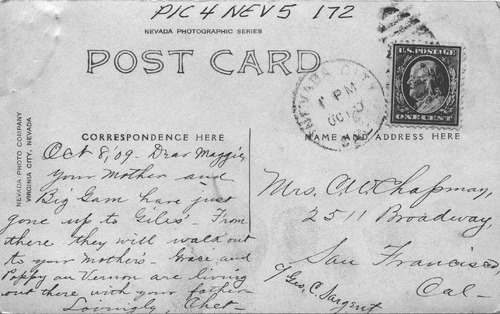 PIC 4 NEV 5 172
NEVADA PHOTOGRAPHIC SERIES
POST CARD
U.S. POSTAGE
ONE CENT
NEVADA CITY
1 PM
OCT
CORRESPONDENCE HERE
NAME AND ADDRESS HERE
NEVADA PHOTO COMPANY
VIRGINIA CITY, NEVADA
Oct 8, '09 - Dear Maggie,
Your Mother and
Big Gam have just
gone up to Giles'. From
there they will walk out
to your Mother's - Grace and
Poppy an Vernon are living
out there with your father
Lovingly, Chet -
Mrs. C.W. Chapman,
2511 Broadway,
San Francisco
Cal -
c/ Geo. C. Sargent